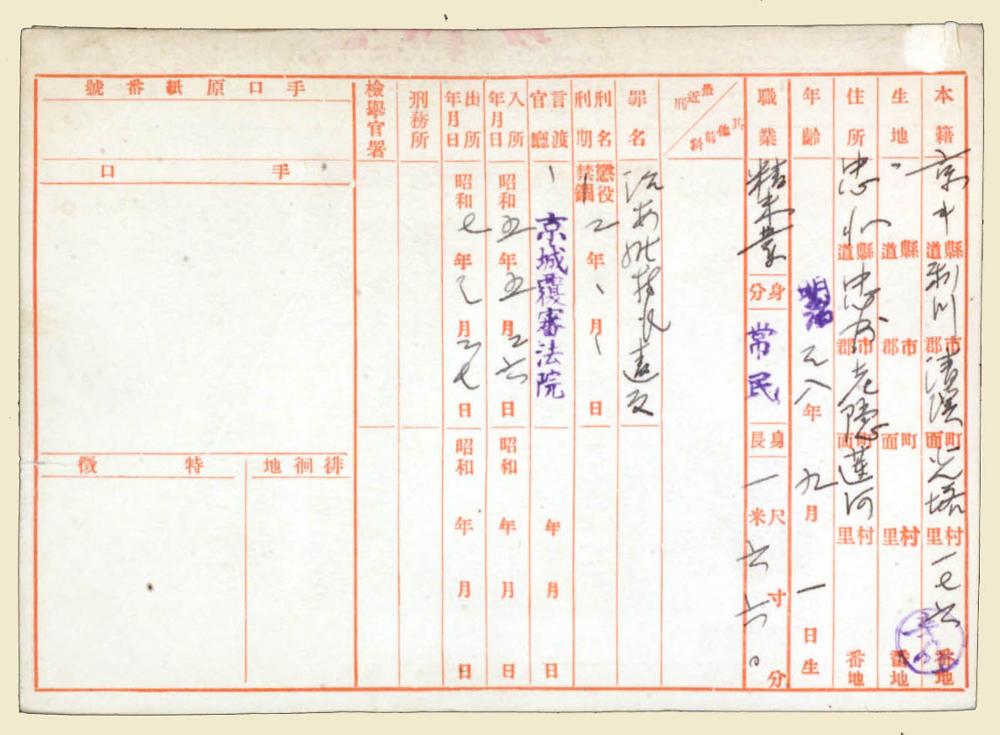 本籍 京 道縣 利川 郡市 淸渓 面町 里村 一七六 番地
生地 〃 道縣 郡市 面町 里村 番地
住所 忠北 道縣 忠州 郡市 老隱 面町 蓮河 里村 番地
年齡 明治 年 九月 一日生
職業 精米業 身分 常民 身長 一米尺 六寸 六 〇分
最近刑 其他前科
罪名 治安維持法違反
刑名 刑期 懲役 禁錮 二年 月 日
言渡官廳 京城覆審法院 年 月 日
入所年月日 昭和五年五月二六日 昭和 年 月 日
出所年月日 昭和七年 月二七日 昭和 年 月 日
刑務所
檢擧官署
手口原紙番號
手口
徘徊地
特徵